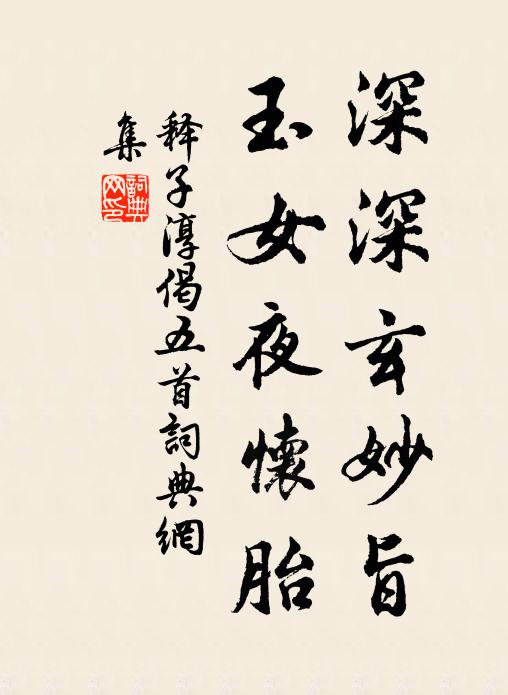 深深玄妙旨
玉女夜懷胎
释子淳偈五首詞典網
集
詞典网印